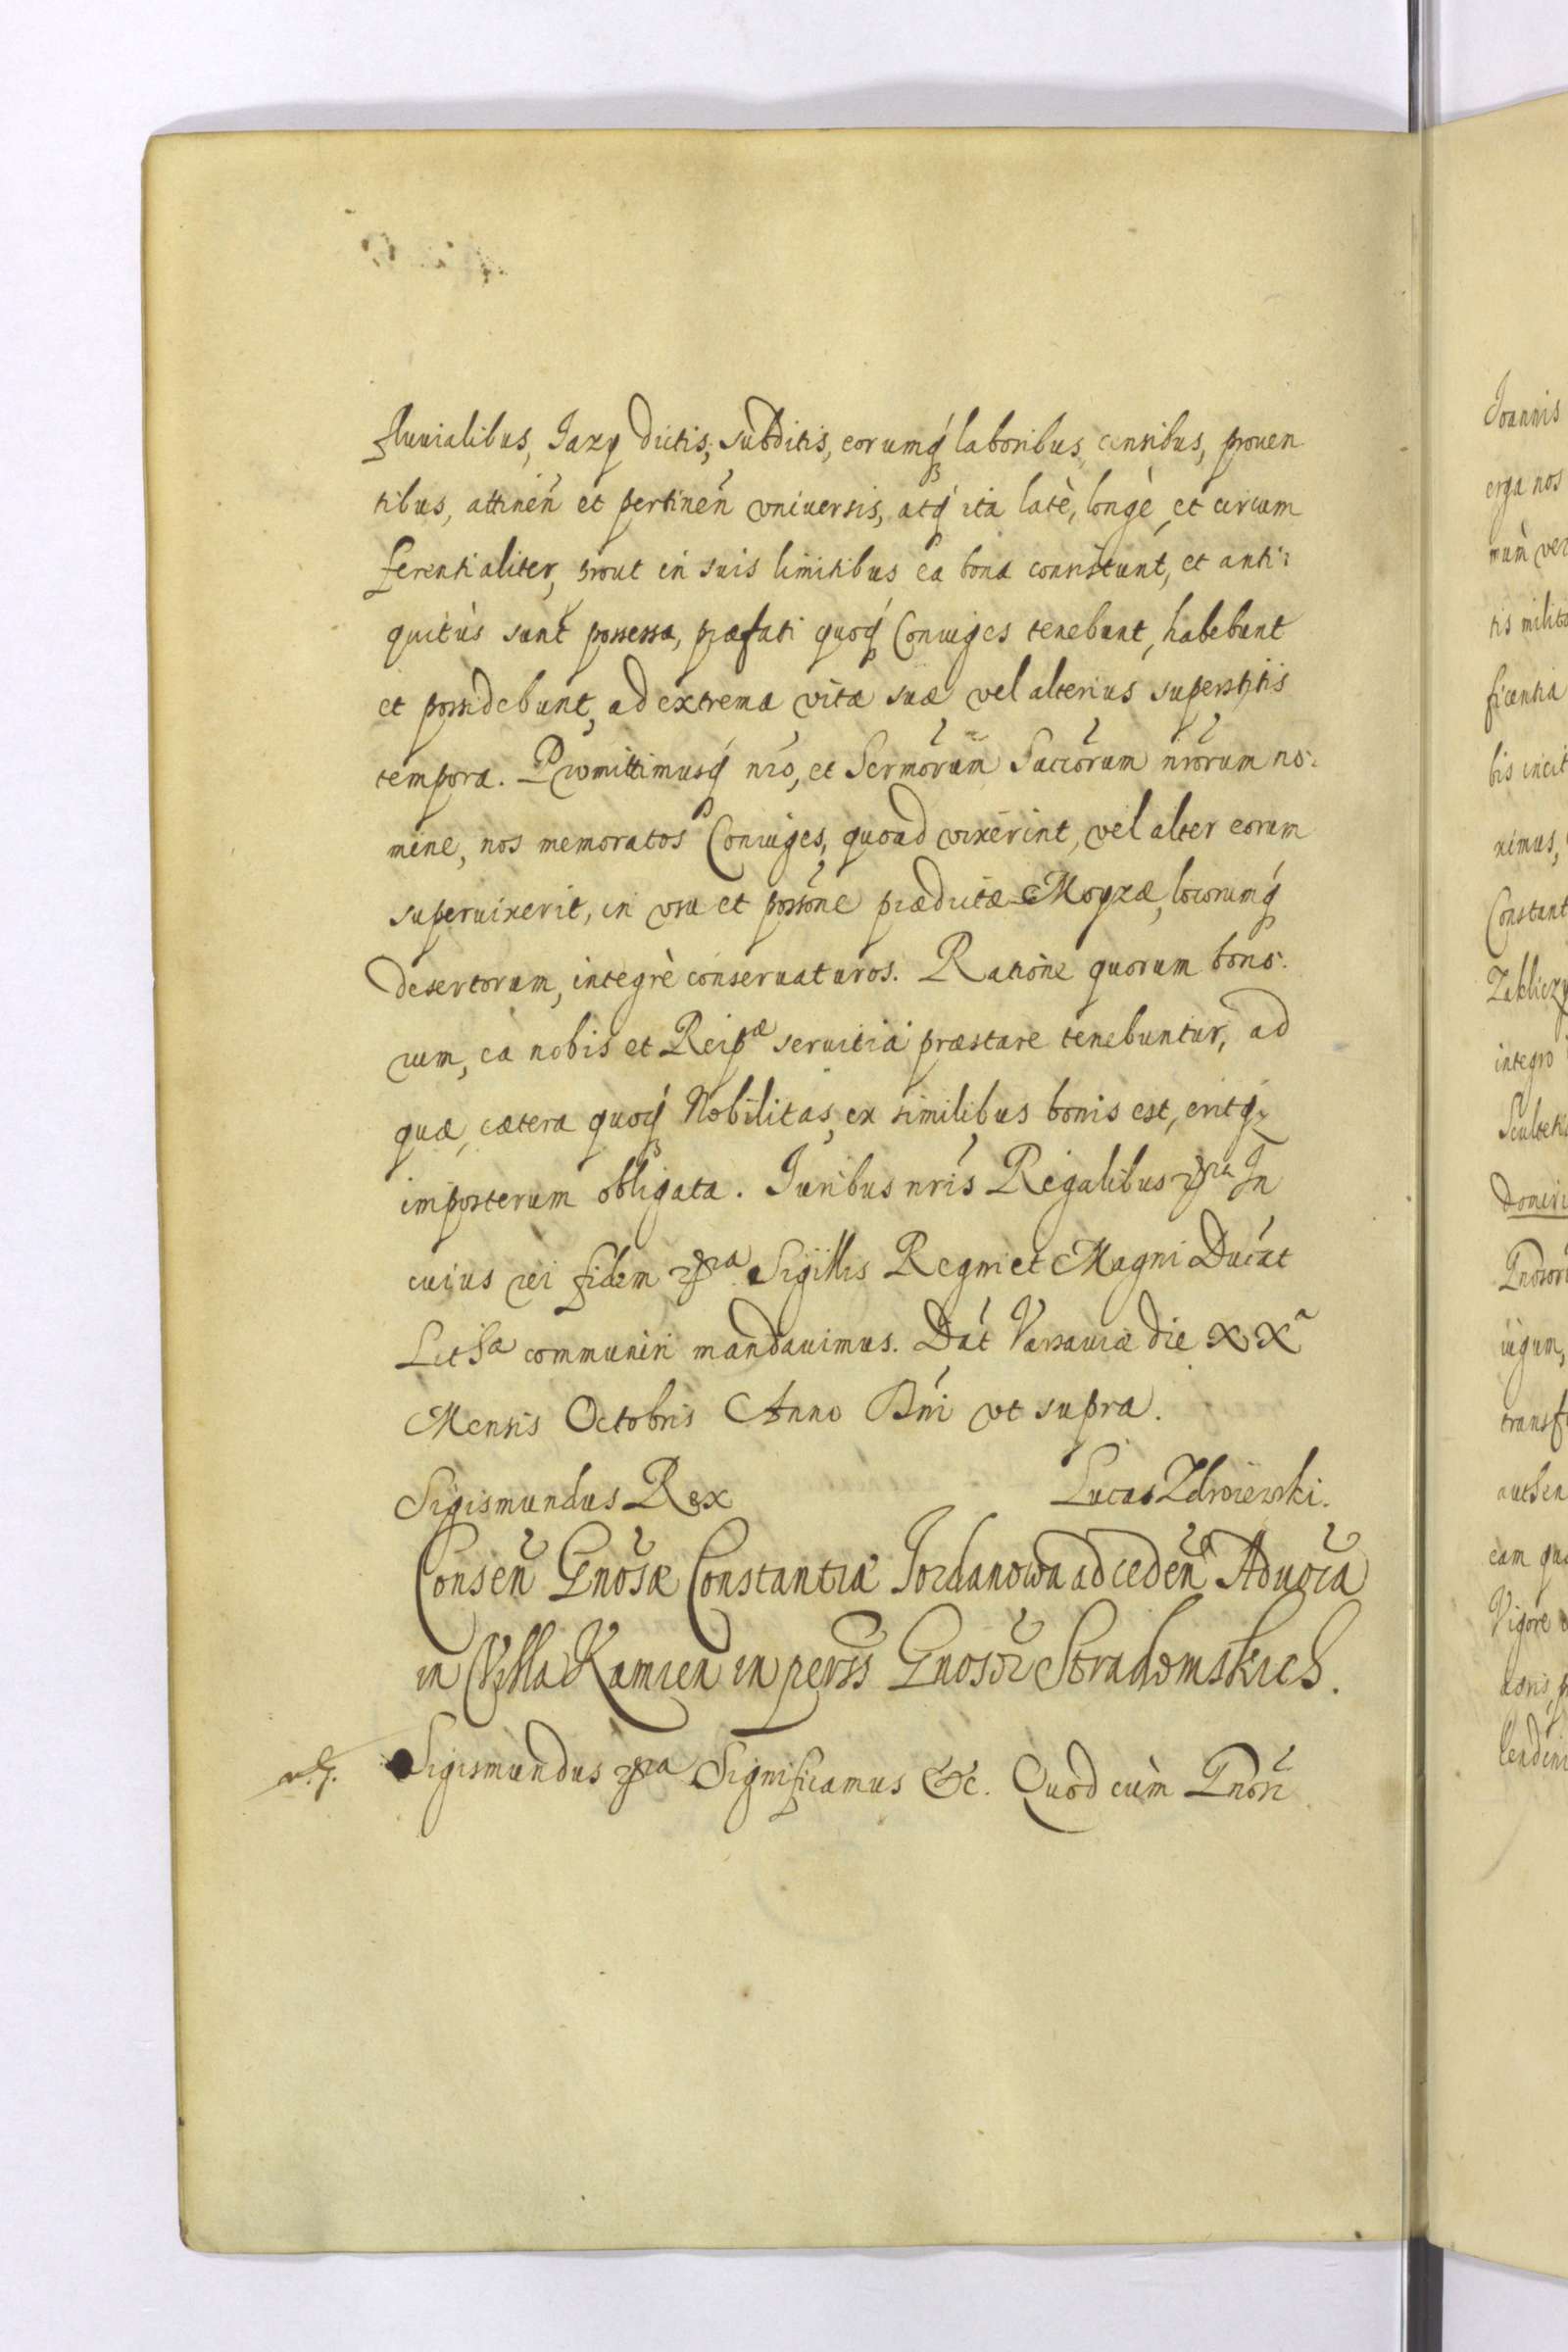 fluuialibus, Jazy dictis, subditis, eorumq́ laboribus, censibus, prouen
tibus, attineñ et pertineñ vniuersis, atq́ ita latè, longè, et circum
ferentialiter, prout in suis limitibus ea bona consistunt, et anti:
quitùs sunt possessa, præfati quoq́ Coniuges tenebunt, habebunt
et possidebunt, ad extrema vitæ suæ vel alterius superstitis
tempora. Promittimusq́ nro, et Sermorum Succrorum nrorum no:
mine, nos memoratos Coniuges, quoad vixerint, vel alter eorum
superuixerit, in vsu et possone prædictæ Moyzæ, locorumq́
desertorum, integrè conseruaturos. Ratione quorum bono:
rum, ea nobis et Reipæ seruitia præstare tenebuntur, ad
quæ, cætera quoq́ Nobilitas, ex similibus bonis est, eritq́
imposterum obligata. Juribus nris Regalibus In
cuius rei fidem Sigillis Regni et Magni Ducat
Lithæ communiri mandauimus. Dat Varsauiæ die XXa
Mensis Octobris Anno Dni vt supra.
Sigismundus Rex Lucas Zdroiewski.
Conseñ Gnosæ Constantiæ Jordanowa ad cedeñ Aduocia
in Villa Kamien in perss Gnosor Stradomskich.
Sigismundus Significamus &c. Quod cùm Gnosi
Joannis
erga nos
mum ver
tis milita
ficentia
bis incit
ximus,
Constant
Zakliczy
integro
Sculteti
domini
Gnosor
iugum,
transf
authen
eam qu
Vigore